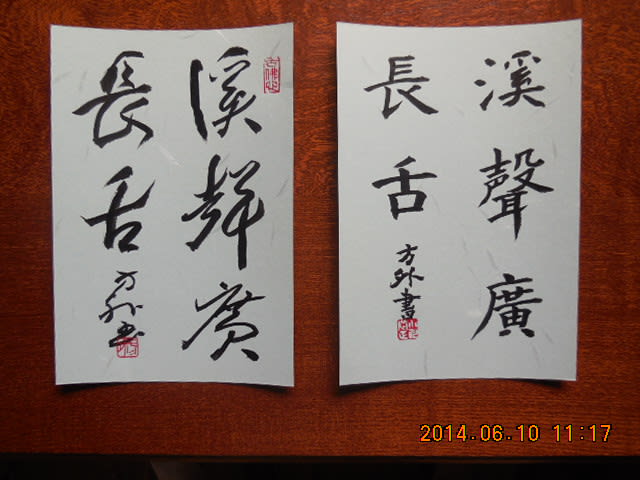 溪聲廣
長舌
方外書
溪聲廣
長舌
方外書
2014.06.10 11:17